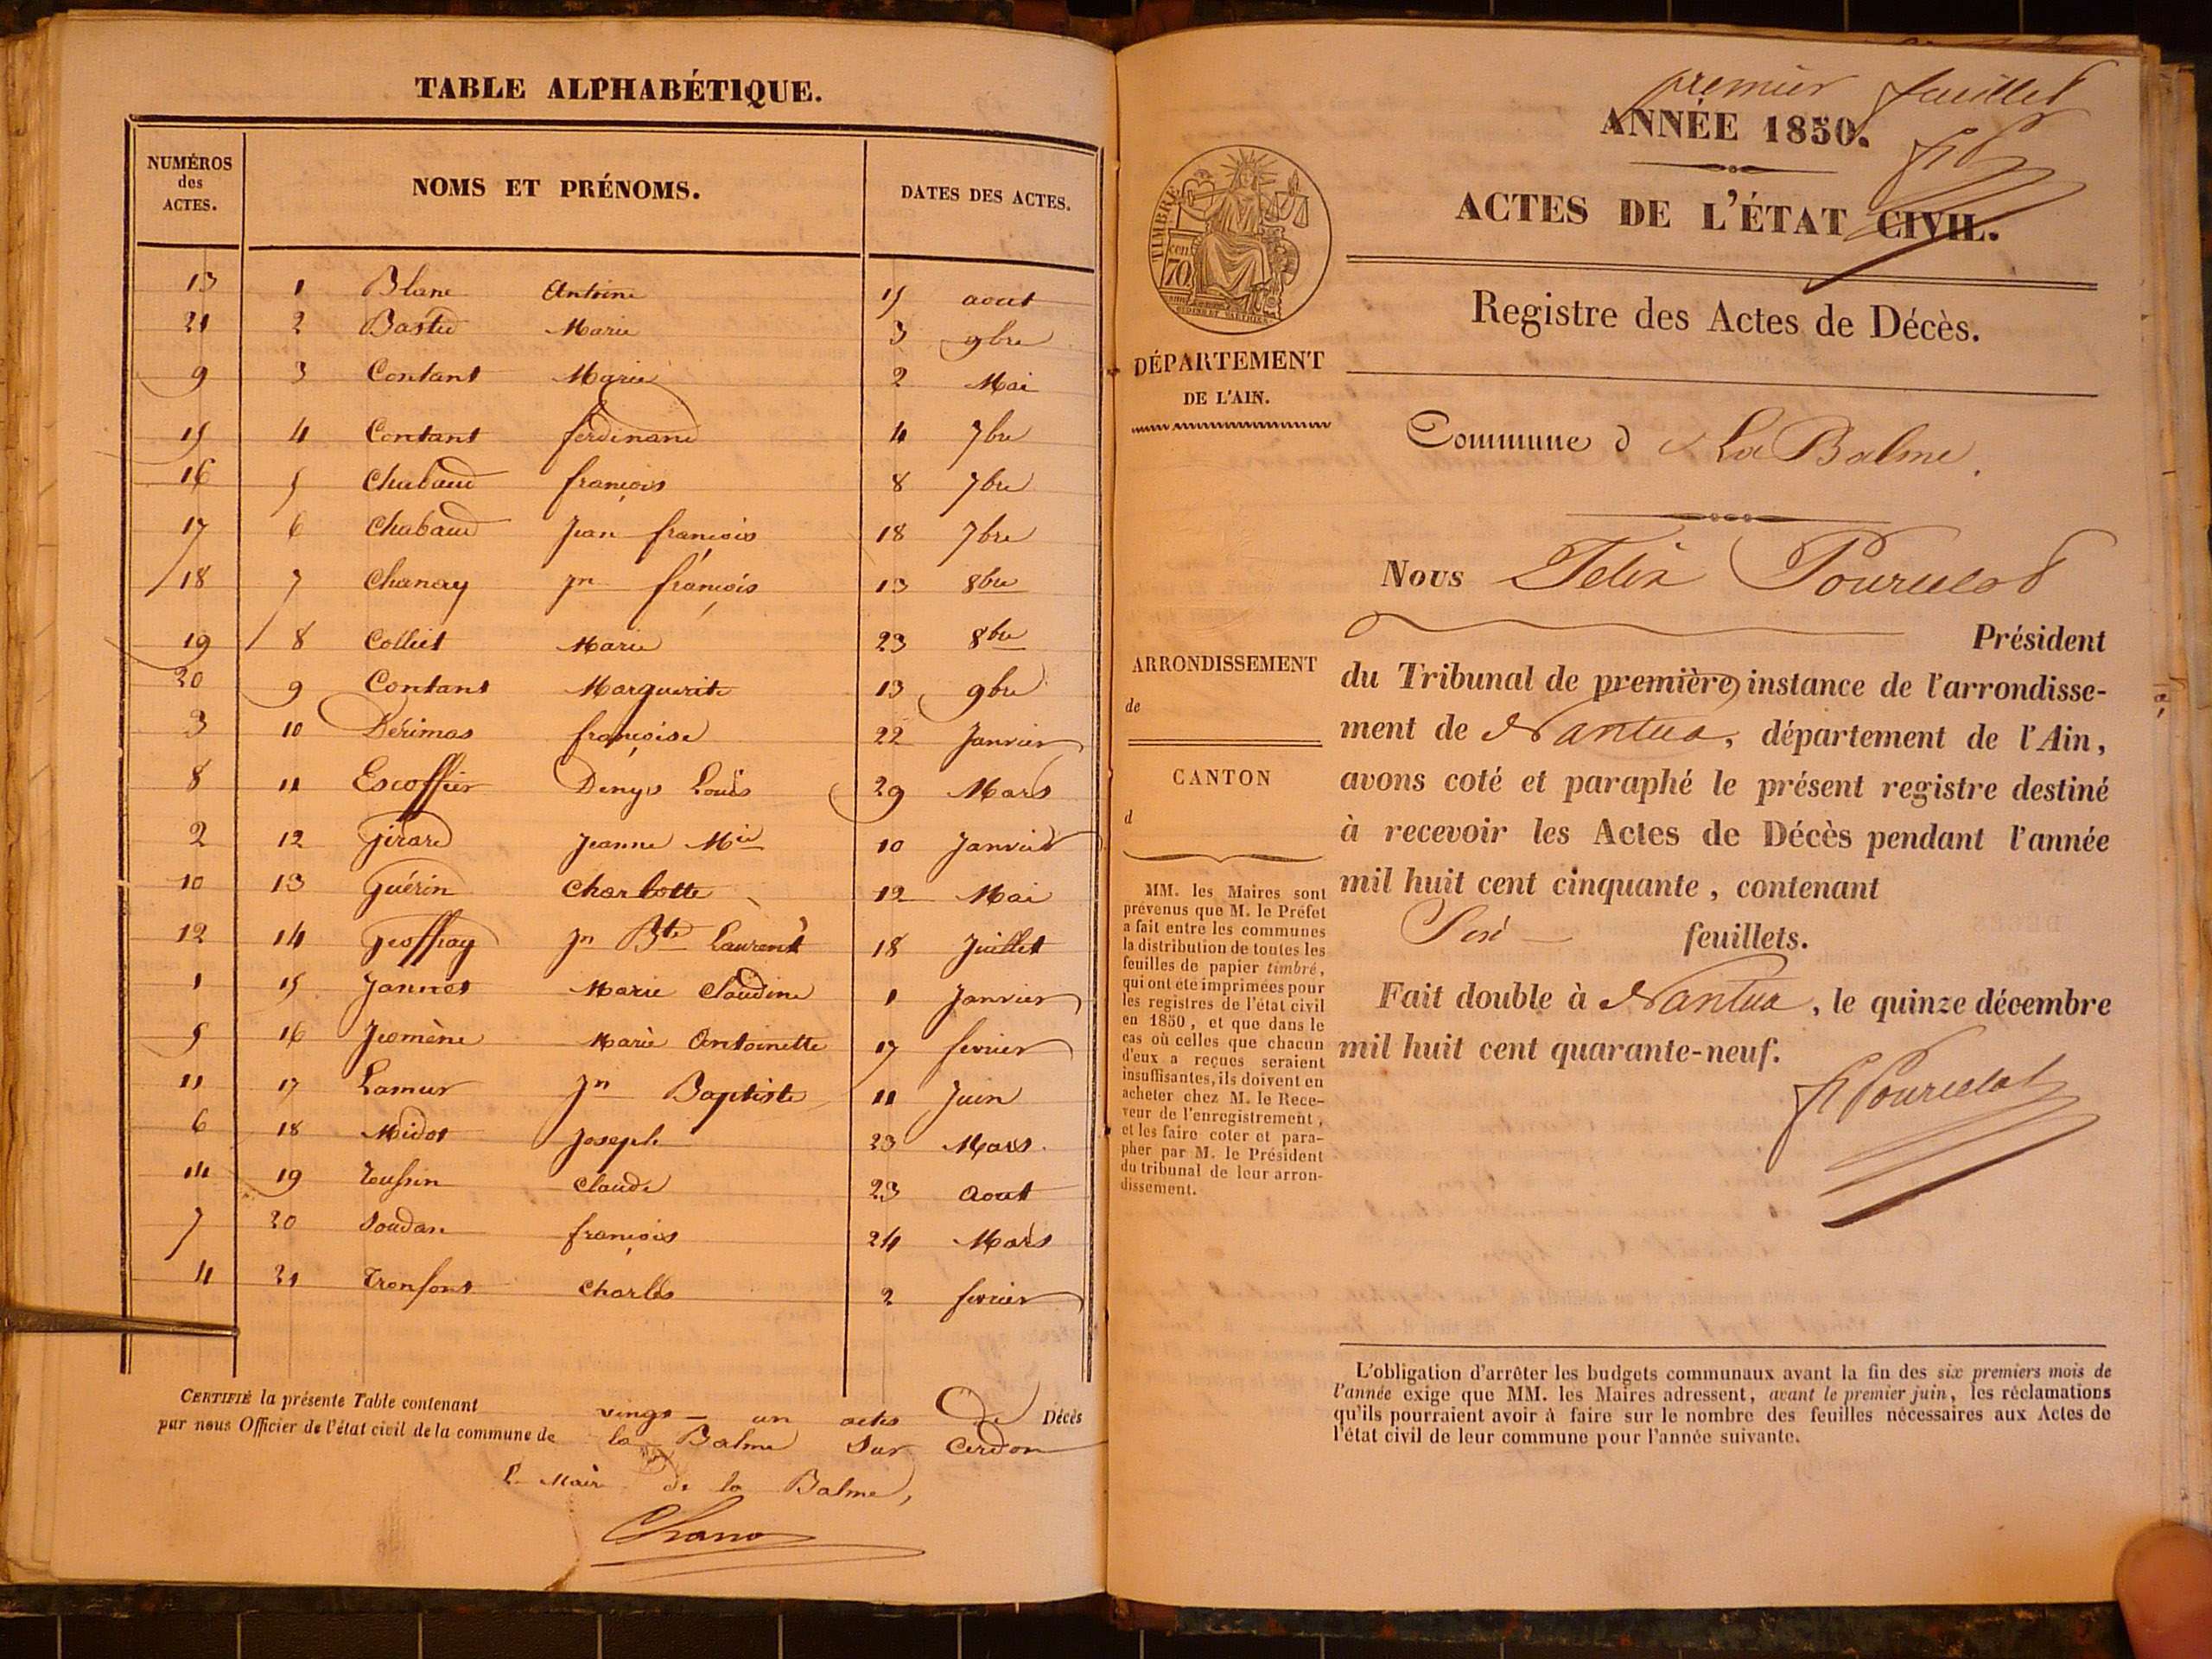 TABLE ALPHABÉTIQUE.
NUMÉROS des ACTES. NOMS ET PRÉNOMS. DATES DES ACTES.
13 1 Blanc Antoine 15 aout
21 2 Bastid Marie 3 9bre
9 3 Contant Marie 2 Mai
15 4 Contant ferdinand 4 7bre
16 5 Chabaud françois 8 7bre
17 6 Chabaud Jean françois 18 7bre
18 7 Chanay Jn françois 13 8bre
19 8 Colliet Marie 23 8bre
20 9 Contant Marguerite 13 9bre
3 10 Dérimas françoise 22 Janvier
8 11 Escoffier Denys Louis 29 Mars
2 12 Girard Jeanne Mie 10 Janvier
10 13 Guérin Charlotte 12 Mai
12 14 Geoffray Jn Bte Laurent 18 Juillet
1 15 Jannet Marie Claudine 1 Janvier
5 16 Jeomène Marie Antoinette 17 fevrier
11 17 Lamur Jn Baptiste 11 Juin
6 18 Midot Joseph 23 Mars
14 19 Claude 23 Aout
7 20 Soudan françois 24 Mars
4 21 Tronfont Charles 2 fevrier
CERTIFIÉ la présente Table contenant vingt-un actes de Décès
par nous Officier de l'état civil de la commune de la Balme sur Cerdon
Le Maire de la Balme,
premier feuillet
ANNÉE 1850.
ACTES DE L'ÉTAT CIVIL.
TIMBRE
70
Registre des Actes de Décès.
DÉPARTEMENT
DE L'AIN.
Commune d e La Balme.
Nous Felix Pourcelot
Président
ARRONDISSEMENT
de
CANTON
d
du Tribunal de première instance de l'arrondisse-
ment de Nantua, département de l'Ain,
avons coté et paraphé le présent registre destiné
à recevoir les Actes de Décès pendant l'année
mil huit cent cinquante, contenant
feuillets.
Fait double à Nantua, le quinze décembre
mil huit cent quarante-neuf.
f Pourcelot
MM. les Maires sont
prévenus que M. le Préfet
a fait entre les communes
la distribution de toutes les
feuilles de papier timbré,
qui ont été imprimées pour
les registres de l'état civil
en 1850, et que dans le
cas où celles que chacun
d'eux a reçues seraient
insuffisantes, ils doivent en
acheter chez M. le Rece-
veur de l'enregistrement,
et les faire coter et para-
pher par M. le Président
du tribunal de leur arron-
dissement.
L'obligation d'arrêter les budgets communaux avant la fin des six premiers mois de
l'année exige que MM. les Maires adressent, avant le premier juin, les réclamations
qu'ils pourraient avoir à faire sur le nombre des feuilles nécessaires aux Actes de
l'état civil de leur commune pour l'année suivante.